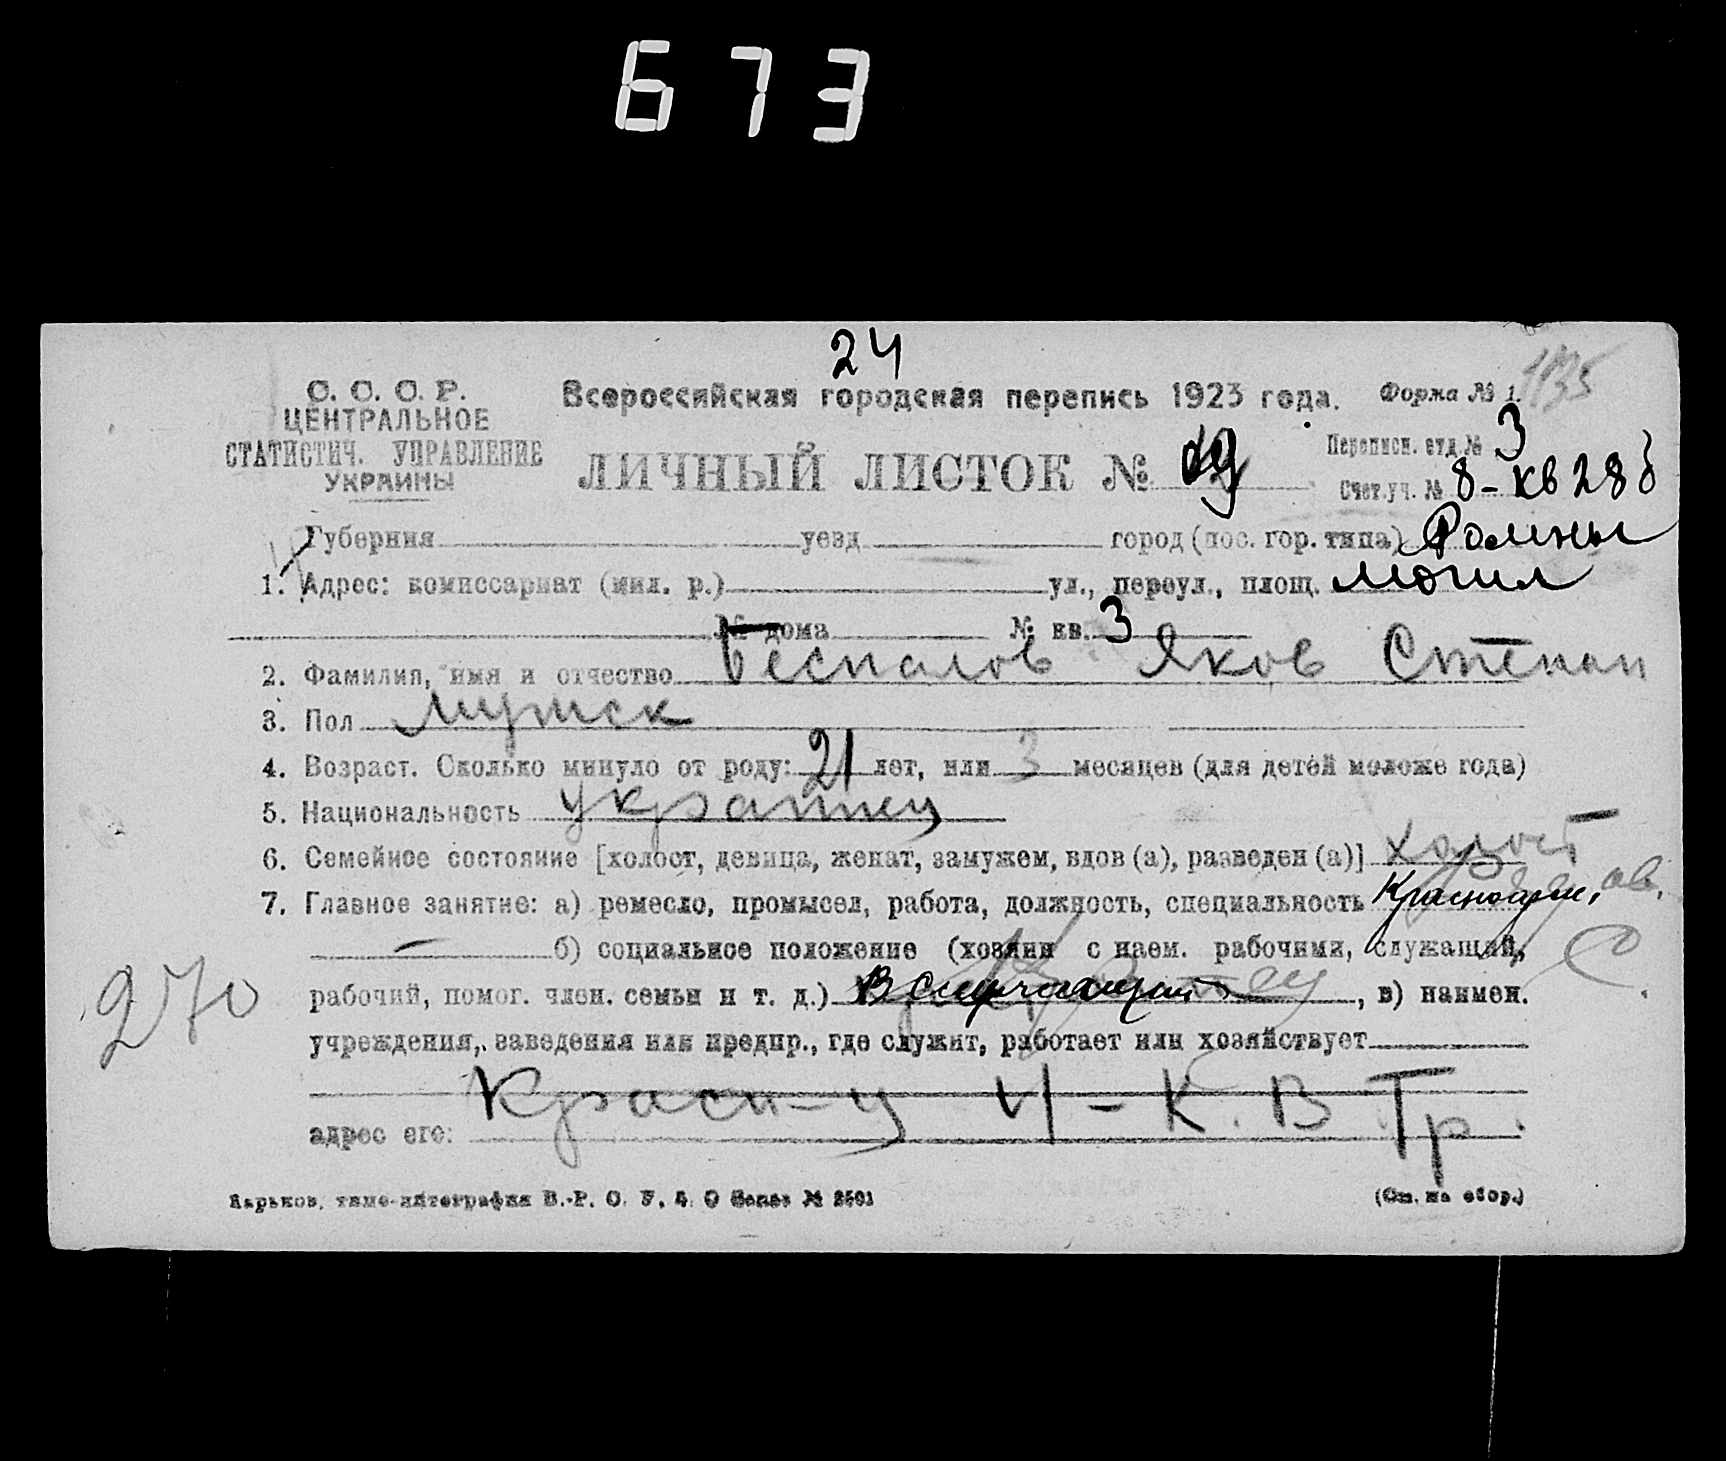 673
24
С. С. С. Р.
ЦЕНТРАЛЬНОЕ
СТАТИСТИЧ. УПРАВЛЕНИЕ
УКРАИНЫ
Всероссийская городская перепись 1923 года.
Форма № 1.
1135
ЛИЧНЫЙ ЛИСТОК №
Переписн. отд. № 3
Счет. уч. № 8 - кв 28 б
Губерния уезд город (пос. гор. типа) Ромны
1. Адрес: комиссариат (мил. р.) ул., переул., площ. Могил
№ дома № кв. 3
2. Фамилия, имя и отчество Беспалов Яков Степан
3. Пол Мужск
4. Возраст. Сколько минуло от роду: 21 лет, или 3 месяцев (для детей моложе года)
5. Национальность украинец
6. Семейное состояние [холост, девица, женат, замужем, вдов (а), разведен (а)] холост
7. Главное занятие: а) ремесло, промысел, работа, должность, специальность Красноарм,
б) социальное положение (хозяин с наем. рабочими, служащий,
270
рабочий, помог. член. семьи и т. д.) , в) наимен.
учреждения, заведения или предпр., где служит, работает или хозяйствует
Красн-ц Ч - К. В Тр.
адрес его:
Харьков, типо-литография В.-Р. О. Заказ №
(См. на обор.)